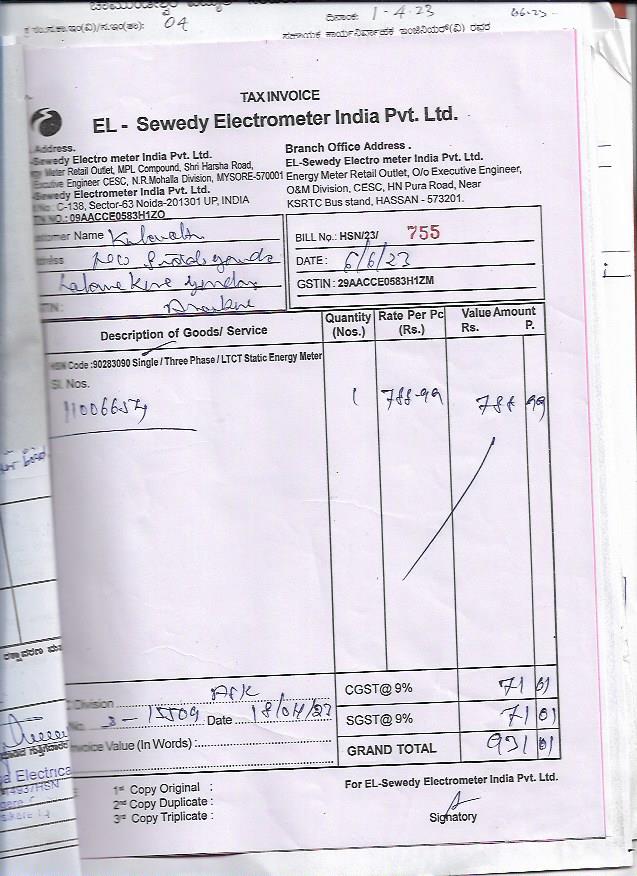 ದಿನಾಂಕ: 1-4-23
ಕ.ಸ.ಸ.ಇಂ(ವಿ)/ಸ.ಇಂ(ಕಾ): 04
ಸಹಾಯಕ ಕಾರ್ಯನಿರ್ವಾಹಕ ಇಂಜಿನಿಯರ್(ವಿ) ರವರ
TAX INVOICE
EL - Sewedy Electrometer India Pvt. Ltd.
Address.
Sewedy Electro meter India Pvt. Ltd.
Meter Retail Outlet, MPL Compound, Shri Harsha Road,
Executive Engineer CESC, N.R.Mohalla Division, MYSORE-570001
Sewedy Electrometer India Pvt. Ltd.
C-138, Sector-63 Noida-201301 UP, INDIA
09AACCE0583H1ZO
Branch Office Address .
EL-Sewedy Electro meter India Pvt. Ltd.
Energy Meter Retail Outlet, O/o Executive Engineer,
O&M Division, CESC, HN Pura Road, Near
KSRTC Bus stand, HASSAN - 573201.
Customer Name Kalavathi
BILL No.: HSN/23/ 755
DATE : 6/6/23
GSTIN : 29AACCE0583H1ZM
Description of Goods/ Service
Quantity (Nos.)
Rate Per Pc (Rs.)
Value Amount
Rs. P.
HSN Code :90283090 Single / Three Phase / LTCT Static Energy Meter
Sl. Nos.
11006654
1 788-99 788 99
Division ARK
CGST@ 9% 71 01
3 - 15509 Date 18/04/23
SGST@ 9% 71 01
Invoice Value (In Words) :
GRAND TOTAL 931 01
1st Copy Original :
2nd Copy Duplicate :
3rd Copy Triplicate :
For EL-Sewedy Electrometer India Pvt. Ltd.
Signatory
Electrica
4937/HSN